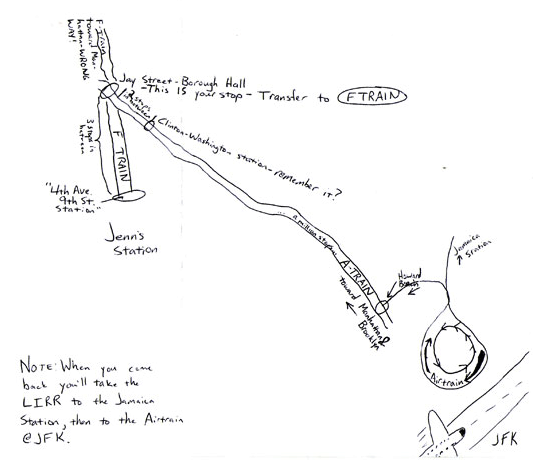 F-Train
toward Man-
hattan-WRONG
WAY!
Jay Street-Borough Hall
-This IS your stop - Transfer to F TRAIN
2 stops
between
Clinton-Washington station-remember it?
3 stops in
between
F TRAIN
"4th Ave.
9th St.
Station"
Jenn's
Station
... a million stops...
A-TRAIN
toward Manhattan &
Brooklyn
Howard
Beach
Jamaica
Station
Airtrain
JFK
NOTE: When you come
back you'll take the
LIRR to the Jamaica
Station, then to the Airtrain
@JFK.